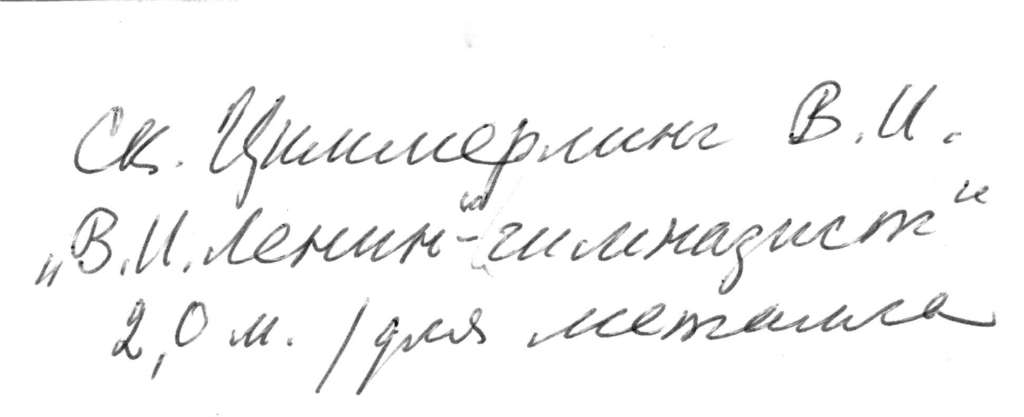 Ск. Циммерлинг В.И.
„В.И.Ленин-гимназист"
2,0 м. /для металла